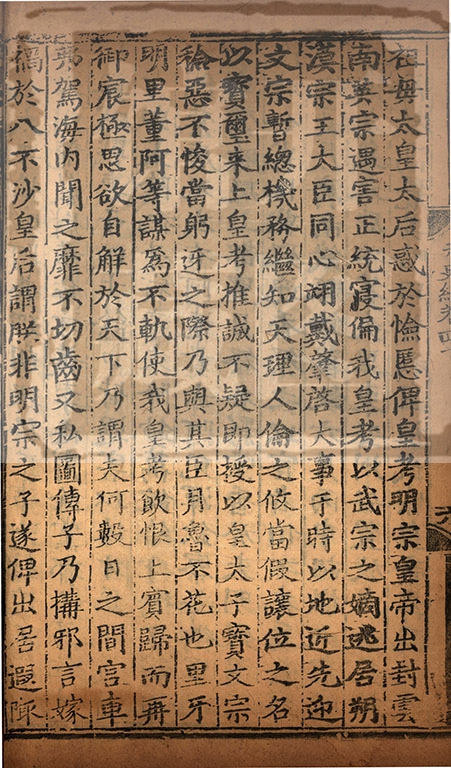 祖母太皇太后惑於憸慝俾皇考明宗皇帝出封雲
南英宗遇害正統寖偏我皇考以武宗之嫡逃居朔
漠宗王大臣同心翊戴肇啓大事于時以地近先迎
文宗暫總機務繼知天理人倫之攸當假讓位之名
以寶璽來上皇考推誠不疑即授以皇太子寶文宗
稔惡不悛當躬迓之際乃與其臣月魯不花也里牙
明里董阿等謀爲不軌使我皇考飲恨上賓歸而再
御宸極思欲自解於天下乃謂夫何數日之間宮車
弗駕海内聞之靡不切齒又私圖傳子乃搆邪言嫁
禍於八不沙皇后謂朕非明宗之子遂俾出居遐陬
六